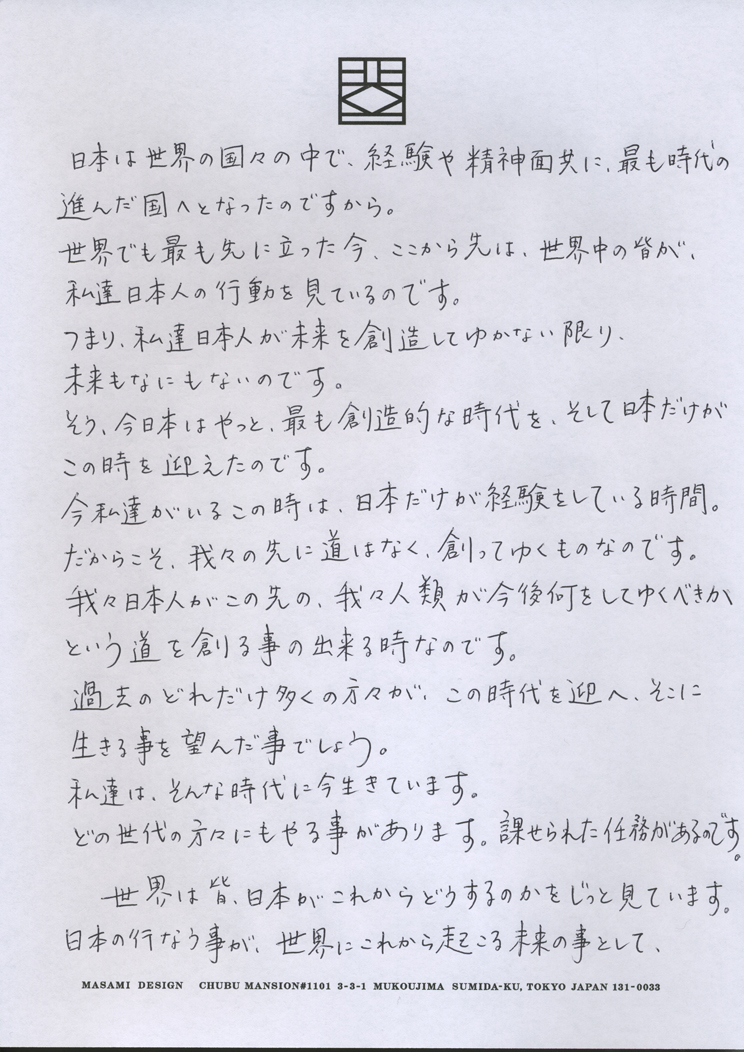 日本は世界の国々の中で、経験や精神面共に、最も時代の
進んだ国へとなったのですから。
世界でも最も先に立った今、ここから先は、世界中の皆が、
私達日本人の行動を見ているのです。
つまり、私達日本人が未来を創造してゆかない限り、
未来もなにもないのです。
そう、今日本はやっと、最も創造的な時代を、そして日本だけが
この時を迎えたのです。
今私達がいるこの時は、日本だけが経験をしている時間。
だからこそ、我々の先に道はなく、創ってゆくものなのです。
我々日本人がこの先の、我々人類が今後何をしてゆくべきか
という道を創る事の出来る時なのです。
過去のどれだけ多くの方々が、この時代を迎へ、そこに
生きる事を望んだ事でしょう。
私達は、そんな時代に今生きています。
どの世代の方々にもやる事があります。課せられた任務があるのです。
世界は皆、日本がこれからどうするのかをじっと見ています。
日本の行なう事が、世界にこれから起こる未来の事として、
MASAMI DESIGN CHUBU MANSION#1101 3-3-1 MUKOUJIMA SUMIDA-KU, TOKYO JAPAN 131-0033